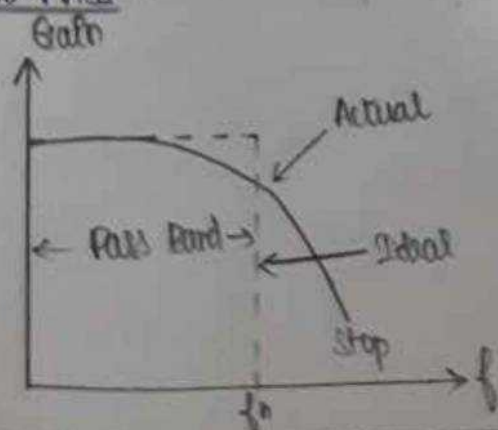 Gain
Actual
← Pass Band →
Ideal
Stop
f
fn